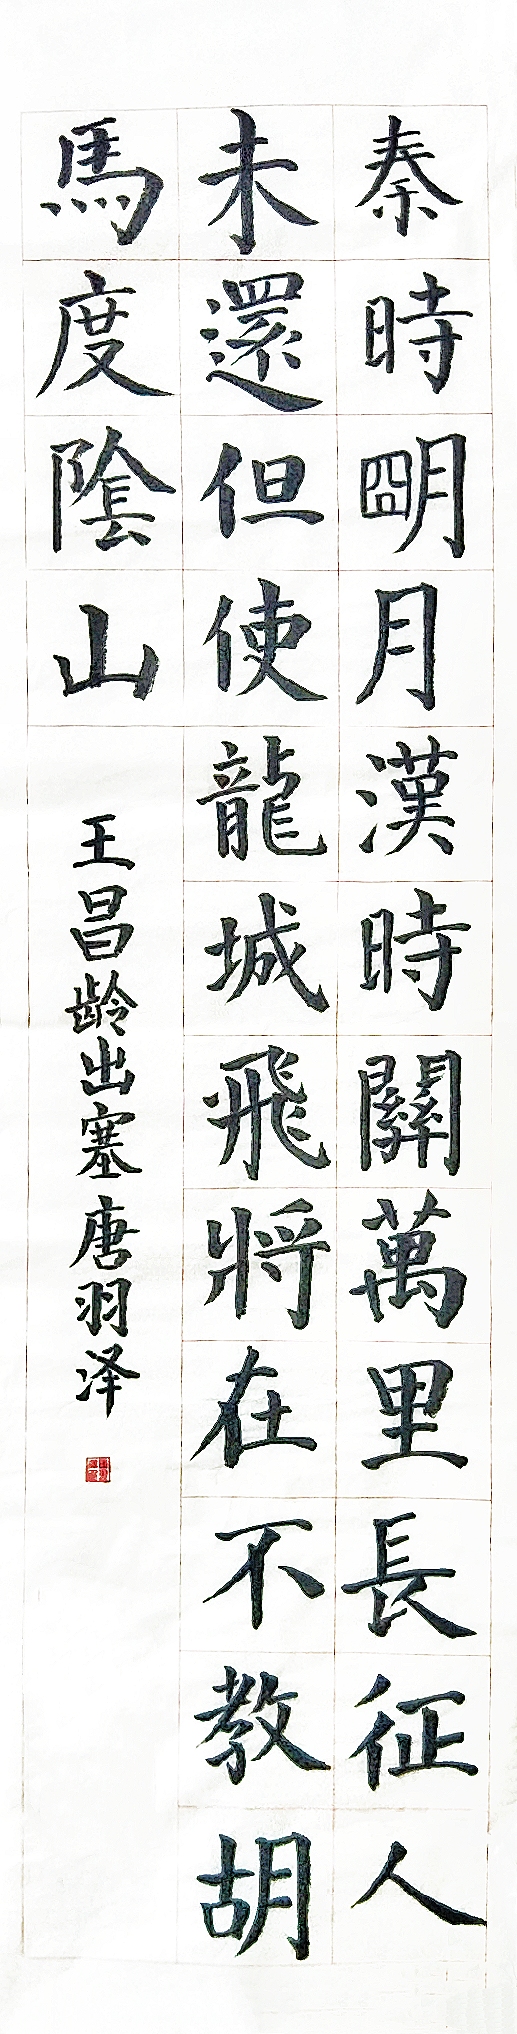 秦時明月漢時關萬里長征人
未還但使龍城飛將在不教胡
馬度陰山
王昌龄出塞唐羽泽